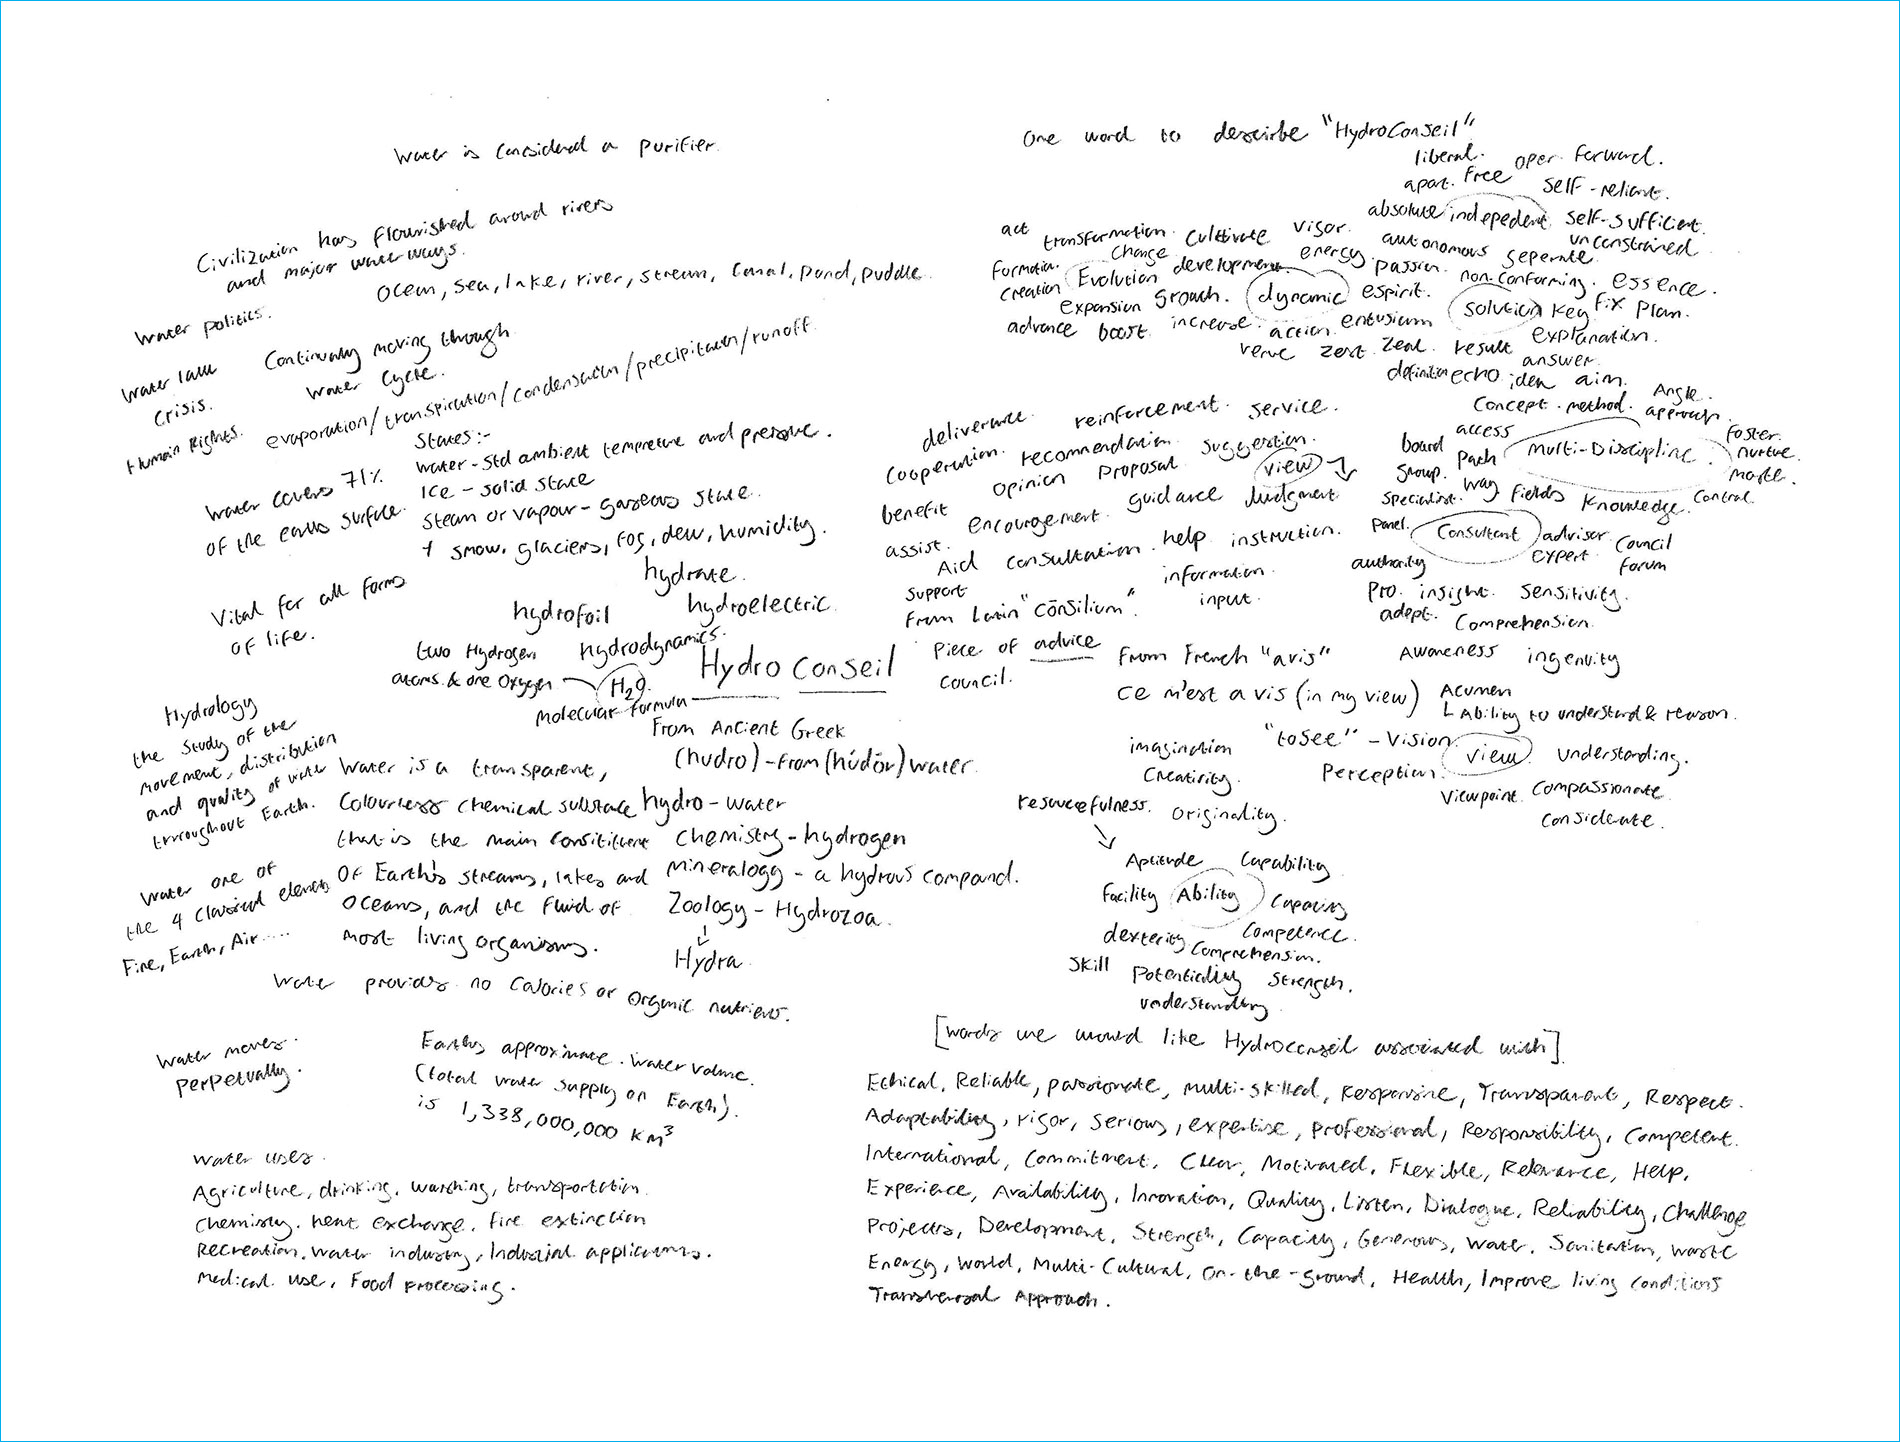 Water is considered a purifier.
Civilization has flourished around rivers
and major waterways.
Ocean, sea, lake, river, stream, canal, pond, puddle.
Water politics.
Water law
Crisis.
Human Rights.
Continually moving through
water cycle.
evaporation/transpiration/condensation/precipitation/runoff.
States:-
Water - std ambient tempreture and pressure.
Ice - solid state
Steam or vapour - gaseous state.
+ snow, glaciers, fog, dew, humidity.
Water covers 71%
of the earths surface.
Vital for all forms
of life.
hydrate.
hydrofoil
hydroelectric
hydrodynamics.
two Hydrogen
atoms. & one Oxygen
H2O.
molecular formula
Hydro Conseil
From Ancient Greek
(hudro) - from (húdōr) water.
Hydrology
the study of the
movement, distribution
and quality of water
throughout Earth.
Water is a transparent,
colourless chemical substace
that is the main consitituent
of Earth's streams, lakes and
oceans, and the fluid of
most living organisms.
hydro - water
Chemistry - hydrogen
Mineralogy - a hydrous compound.
Zoology - Hydrozoa.
Hydra
Water one of
the 4 classical elements
Fire, Earth, Air.....
Water provides no calories or organic nutrients.
Water moves
perpetually.
Earths approximate water volume.
(total water supply on Earth).
is 1,338,000,000 km3
Water uses.
Agriculture, drinking, washing, transportation
Chemistry. heat exchange, fire extinction
Recreation. Water industry, Industrial applications.
Medical use, Food processing.
One word to descirbe "HydroConseil"
liberal. open. forward.
apart. free self-reliant.
absolute indepedent. self-sufficient.
act transformation. cultivate vigor. autonomous seperate. unconstrained
change energy. passion. non-conforming. essence.
formation. Evolution development
creation
expansion growth. dynamic espirit. solution key fix plan.
advance boost. increase. action. entusiasm explanation.
verve zest. zeal. result answer.
definition echo idea aim. Angle.
Concept. method. approach.
deliverance. reinforcement. service.
cooperation. recommendation. suggestion.
opinion proposal view
benefit encouragement. guidance Judgment
assist. Aid consultation. help instruction.
support information.
input.
From Latin "cōnsilium".
Piece of advice
council.
access foster.
board path Multi-Discipline. nurture
group. way fields knowledge. control.
specialist.
panel. Consultant adviser council
authority expert. forum
pro. insight. sensitivity.
adept. Comprehension.
Awareness ingenuity
From French "avis"
ce m'est a vis (in my view)
Acumen
Ability to understand & reason.
"to see" - Vision.
imagination
Perception.
view. understanding.
creativity.
viewpoint. compassionate.
considerate.
resourcefulness. originality.
Aptitude Capability
Facility Ability Capacity
dexterity competence.
Comprehension.
skill potentially strength.
understanding
[words we would like Hydroconseil associated with]
Ethical, Reliable, passionate, multi-skilled, Responsive, Transparent, Respect.
Adaptability, rigor, serious, expertise, professional, Responsibility, Competent.
International, Commitment, Clear, Motivated, Flexible, Relevance, Help,
Experience, Availability, Innovation, Quality, Listen, Dialogue, Reliability, Challenge
Projects, Development, Strength, Capacity, Generous, Water, Sanitation, Waste
Energy, World, Multi-Cultural, On-the-ground, Health, Improve living conditions
Transversal Approach.